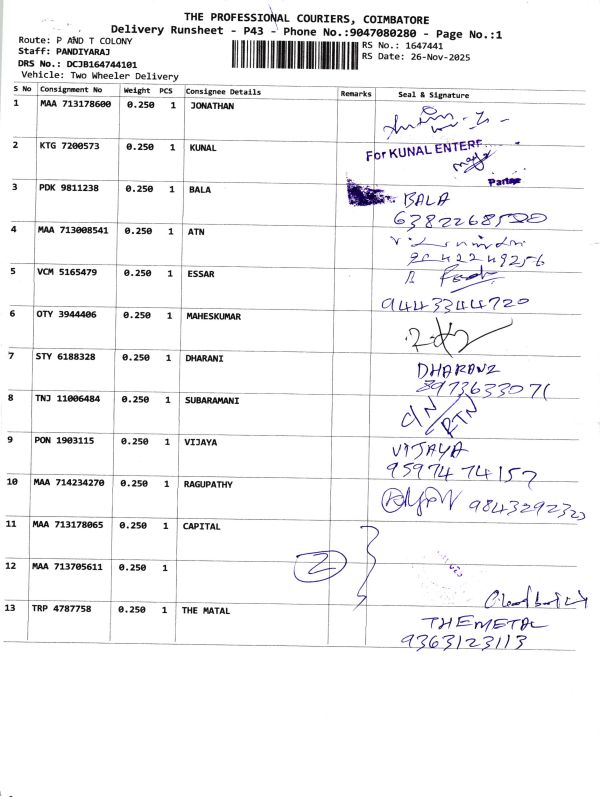 THE PROFESSIONAL COURIERS, COIMBATORE
Delivery Runsheet - P43 - Phone No.:9047080280 - Page No.:1
Route: P AND T COLONY
RS No.: 1647441
Staff: PANDIYARAJ
RS Date: 26-Nov-2025
DRS No.: DCJB164744101
Vehicle: Two Wheeler Delivery
S No Consignment No Weight PCS Consignee Details Remarks Seal & Signature
1 MAA 713178600 0.250 1 JONATHAN
2 KTG 7200573 0.250 1 KUNAL
For KUNAL ENTERF
Partne
3 PDK 9811238 0.250 1 BALA BALA
6382268500
4 MAA 713008541 0.250 1 ATN
9042249256
5 VCM 5165479 0.250 1 ESSAR
9443344720
6 OTY 3944406 0.250 1 MAHESKUMAR
7 STY 6188328 0.250 1 DHARANI DHARANI
8973633071
8 TNJ 11006484 0.250 1 SUBARAMANI
RTN
9 PON 1903115 0.250 1 VIJAYA VIJAYA
9597474157
10 MAA 714234270 0.250 1 RAGUPATHY 9843292323
11 MAA 713178065 0.250 1 CAPITAL
12 MAA 713705611 0.250 1 2
13 TRP 4787758 0.250 1 THE MATAL
THEMETAL
9363123113